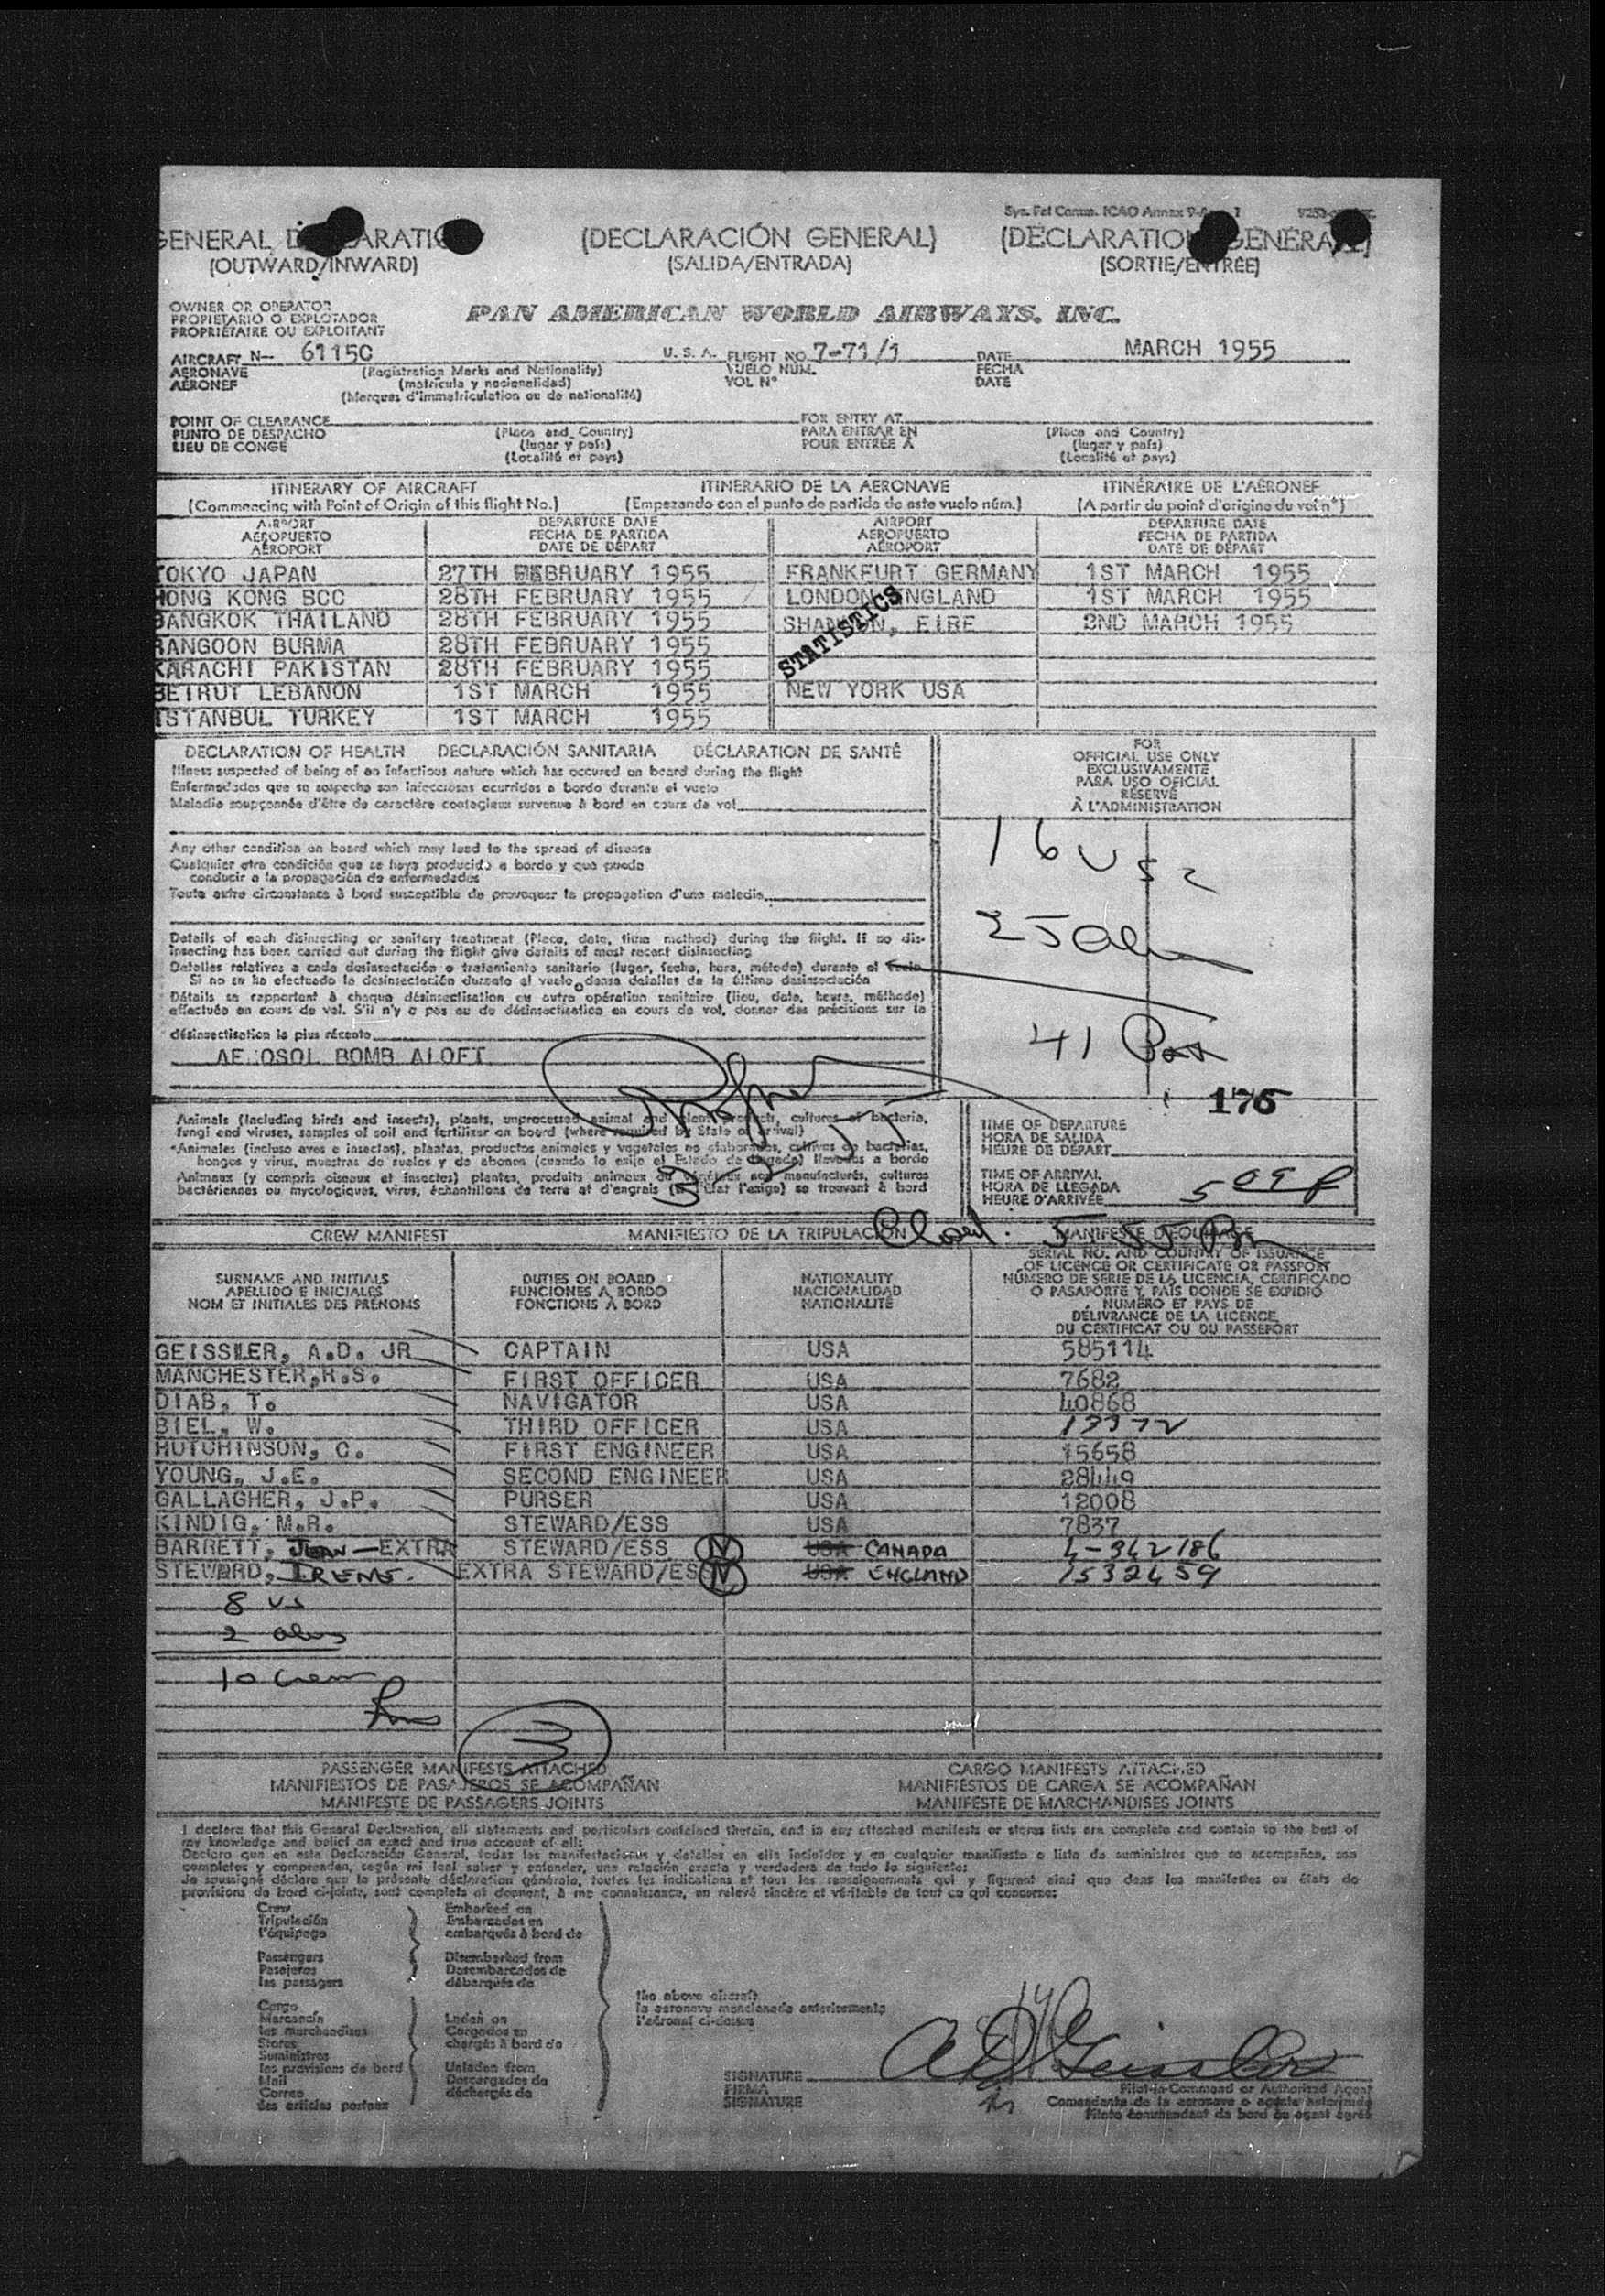 Sys. Fel Comm. ICAO Annex 9-
GENERAL DECLARATION (DECLARACIÓN GENERAL) (DÉCLARATION GÉNÉRALE)
(OUTWARD/INWARD) (SALIDA/ENTRADA) (SORTIE/ENTRÉE)
OWNER OR OPERATOR
PROPIETARIO O EXPLOTADOR
PROPRIÉTAIRE OU EXPLOITANT
PAN AMERICAN WORLD AIRWAYS, INC.
AIRCRAFT N— 6115C U. S. A. FLIGHT NO. 7-71/1 DATE MARCH 1955
AERONAVE (Registration Marks and Nationality) VUELO NUM. FECHA
AÉRONEF (matrícula y nacionalidad) VOL Nº DATE
(Marques d'immatriculation ou de nationalité)
POINT OF CLEARANCE FOR ENTRY AT
PUNTO DE DESPACHO (Place and Country) PARA ENTRAR EN (Place and Country)
LIEU DE CONGÉ (lugar y país) POUR ENTRÉE À (lugar y país)
(Localité et pays) (Localité et pays)
ITINERARY OF AIRCRAFT ITINERARIO DE LA AERONAVE ITINÉRAIRE DE L'AÉRONEF
(Commencing with Point of Origin of this flight No.) (Empezando con el punto de partida de este vuelo núm.) (A partir du point d'origine du vol nº)
AIRPORT DEPARTURE DATE AIRPORT DEPARTURE DATE
AEROPUERTO FECHA DE PARTIDA AEROPUERTO FECHA DE PARTIDA
AÉROPORT DATE DE DÉPART AÉROPORT DATE DE DÉPART
TOKYO JAPAN 27TH FEBRUARY 1955 FRANKFURT GERMANY 1ST MARCH 1955
HONG KONG BCC 28TH FEBRUARY 1955 LONDON ENGLAND 1ST MARCH 1955
BANGKOK THAILAND 28TH FEBRUARY 1955 SHANNON, EIRE 2ND MARCH 1955
STATISTICS
RANGOON BURMA 28TH FEBRUARY 1955
KARACHI PAKISTAN 28TH FEBRUARY 1955
BEIRUT LEBANON 1ST MARCH 1955 NEW YORK USA
ISTANBUL TURKEY 1ST MARCH 1955
DECLARATION OF HEALTH DECLARACIÓN SANITARIA DÉCLARATION DE SANTÉ
Illness suspected of being of an infectious nature which has occured on board during the flight
Enfermedades que se sospecha son infecciosas ocurridas a bordo durante el vuelo
Maladie soupçonnée d'être de caractère contagieux survenue à bord en cours de vol
Any other condition on board which may lead to the spread of disease
Cualquier otra condición que se haya producido a bordo y que pueda
conducir a la propagación de enfermedades
Toute autre circonstance à bord susceptible de provoquer la propagation d'une maladie
Details of each disinsecting or sanitary treatment (Place, date, time method) during the flight. If no dis-
insecting has been carried out during the flight give details of most recent disinsecting
Detalles relativos a cada desinsectación o tratamiento sanitario (lugar, fecha, hora, método) durante el vuelo
Si no se ha efectuado la desinsectación durante el vuelo, dense detalles de la última desinsectación
Détails se rapportant à chaque désinsectisation ou autre opération sanitaire (lieu, date, heure, méthode)
effectuée en cours de vol. S'il n'y a pas eu de désinsectisation en cours de vol, donner des précisions sur la
désinsectisation la plus récente
AEROSOL BOMB ALOFT
FOR
OFFICIAL USE ONLY
EXCLUSIVAMENTE
PARA USO OFICIAL
RÉSERVÉ
À L'ADMINISTRATION
16 USC
25 Alien
41 Pax
175
Animals (including birds and insects), plants, unprocessed animal and plant products, cultures of bacteria,
fungi and viruses, samples of soil and fertilizer on board (where required by State of arrival)
Animales (incluso aves e insectos), plantas, productos animales y vegetales no elaborados, cultivos de bacterias,
hongos y virus, muestras de suelos y de abonos (cuando lo exija el Estado de llegada) llevados a bordo
Animaux (y compris oiseaux et insectes) plantes, produits animaux ou végétaux non manufacturés, cultures
bactériennes ou mycologiques, virus, échantillons de terre et d'engrais (si l'État l'exige) se trouvant à bord
TIME OF DEPARTURE
HORA DE SALIDA
HEURE DE DÉPART
TIME OF ARRIVAL
HORA DE LLEGADA 5 09 P
HEURE D'ARRIVÉE
CREW MANIFEST MANIFIESTO DE LA TRIPULACIÓN MANIFESTE D'ÉQUIPAGE
SERIAL NO. AND COUNTRY OF ISSUANCE
OF LICENCE OR CERTIFICATE OR PASSPORT
SURNAME AND INITIALS DUTIES ON BOARD NATIONALITY NÚMERO DE SERIE DE LA LICENCIA, CERTIFICADO
APELLIDO E INICIALES FUNCIONES A BORDO NACIONALIDAD O PASAPORTE Y PAÍS DONDE SE EXPIDIÓ
NOM ET INITIALES DES PRÉNOMS FONCTIONS À BORD NATIONALITÉ NUMÉRO ET PAYS DE
DÉLIVRANCE DE LA LICENCE
DU CERTIFICAT OU DU PASSEPORT
GEISSLER, A.D. JR CAPTAIN USA 585114
MANCHESTER, R.S. FIRST OFFICER USA 7682
DIAB, T. NAVIGATOR USA 40868
BIEL, W. THIRD OFFICER USA 13372
HUTCHINSON, C. FIRST ENGINEER USA 15658
YOUNG, J.E. SECOND ENGINEER USA 28449
GALLAGHER, J.P. PURSER USA 12008
KINDIG, M.R. STEWARD/ESS USA 7837
BARRETT, JEAN — EXTRA STEWARD/ESS N USA CANADA 4-342186
STEWARD, IRENE. EXTRA STEWARD/ESS N USA ENGLAND 1532459
8 US
2 alens
10 Crew
3
PASSENGER MANIFESTS ATTACHED CARGO MANIFESTS ATTACHED
MANIFIESTOS DE PASAJEROS SE ACOMPAÑAN MANIFIESTOS DE CARGA SE ACOMPAÑAN
MANIFESTE DE PASSAGERS JOINTS MANIFESTE DE MARCHANDISES JOINTS
I declare that this General Declaration, all statements and particulars contained therein, and in any attached manifests or stores lists are complete and contain to the best of
my knowledge and belief an exact and true account of all:
Declaro que en esta Declaración General, todas las manifestaciones y detalles en ella incluidos y en cualquier manifiesto o lista de suministros que se acompañan, son
completos y comprenden, según mi leal saber y entender, una relación exacta y verdadera de todo lo siguiente:
Je soussigné déclare que la présente déclaration générale, toutes les indications et tous les renseignements qui y figurent ainsi que dans les manifestes ou états de
provisions de bord ci-joints, sont complets et donnent, à ma connaissance, un relevé sincère et véritable de tout ce qui concerne:
Crew Embarked on
Tripulación Embarcados en
l'équipage embarqués à bord de
Passengers Disembarked from
Pasajeros Desembarcados de
les passagers débarqués de
Cargo
Mercancía Laden on
les marchandises Cargados en
Stores chargés à bord de
Suministros
les provisions de bord Unladen from
Mail Descargados de
Correo déchargés de
des articles postaux
the above aircraft
la aeronave mencionada anteriormente
l'aéronef ci-dessus
SIGNATURE A D Geissler
FIRMA
SIGNATURE
Pilot-in-Command or Authorized Agent
Comandante de la aeronave o agente autorizado
Pilote commandant de bord ou agent agréé